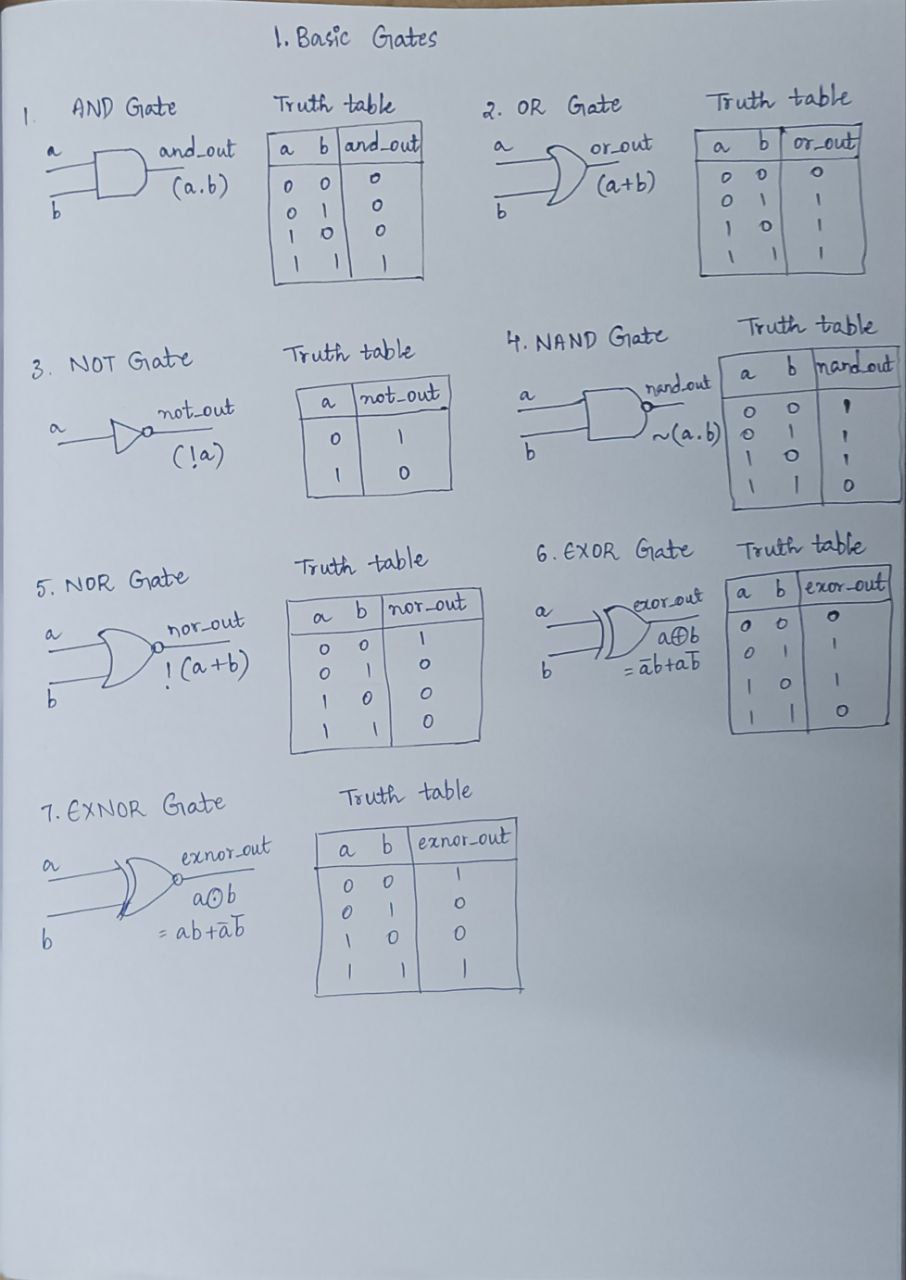 1. Basic Gates
1. AND Gate
a
b
and_out
(a.b)
Truth table
a b and_out
0 0 0
0 1 0
1 0 0
1 1 1
2. OR Gate
a
b
or_out
(a+b)
Truth table
a b or_out
0 0 0
0 1 1
1 0 1
1 1 1
3. NOT Gate
a
not_out
(!a)
Truth table
a not_out
0 1
1 0
4. NAND Gate
a
b
nand_out
~(a.b)
Truth table
a b nand_out
0 0 1
0 1 1
1 0 1
1 1 0
5. NOR Gate
a
b
nor_out
!(a+b)
Truth table
a b nor_out
0 0 1
0 1 0
1 0 0
1 1 0
6. EXOR Gate
a
b
exor_out
a⊕b
= a̅b+ab̅
Truth table
a b exor_out
0 0 0
0 1 1
1 0 1
1 1 0
7. EXNOR Gate
a
b
exnor_out
a⊙b
= ab+a̅b̅
Truth table
a b exnor_out
0 0 1
0 1 0
1 0 0
1 1 1